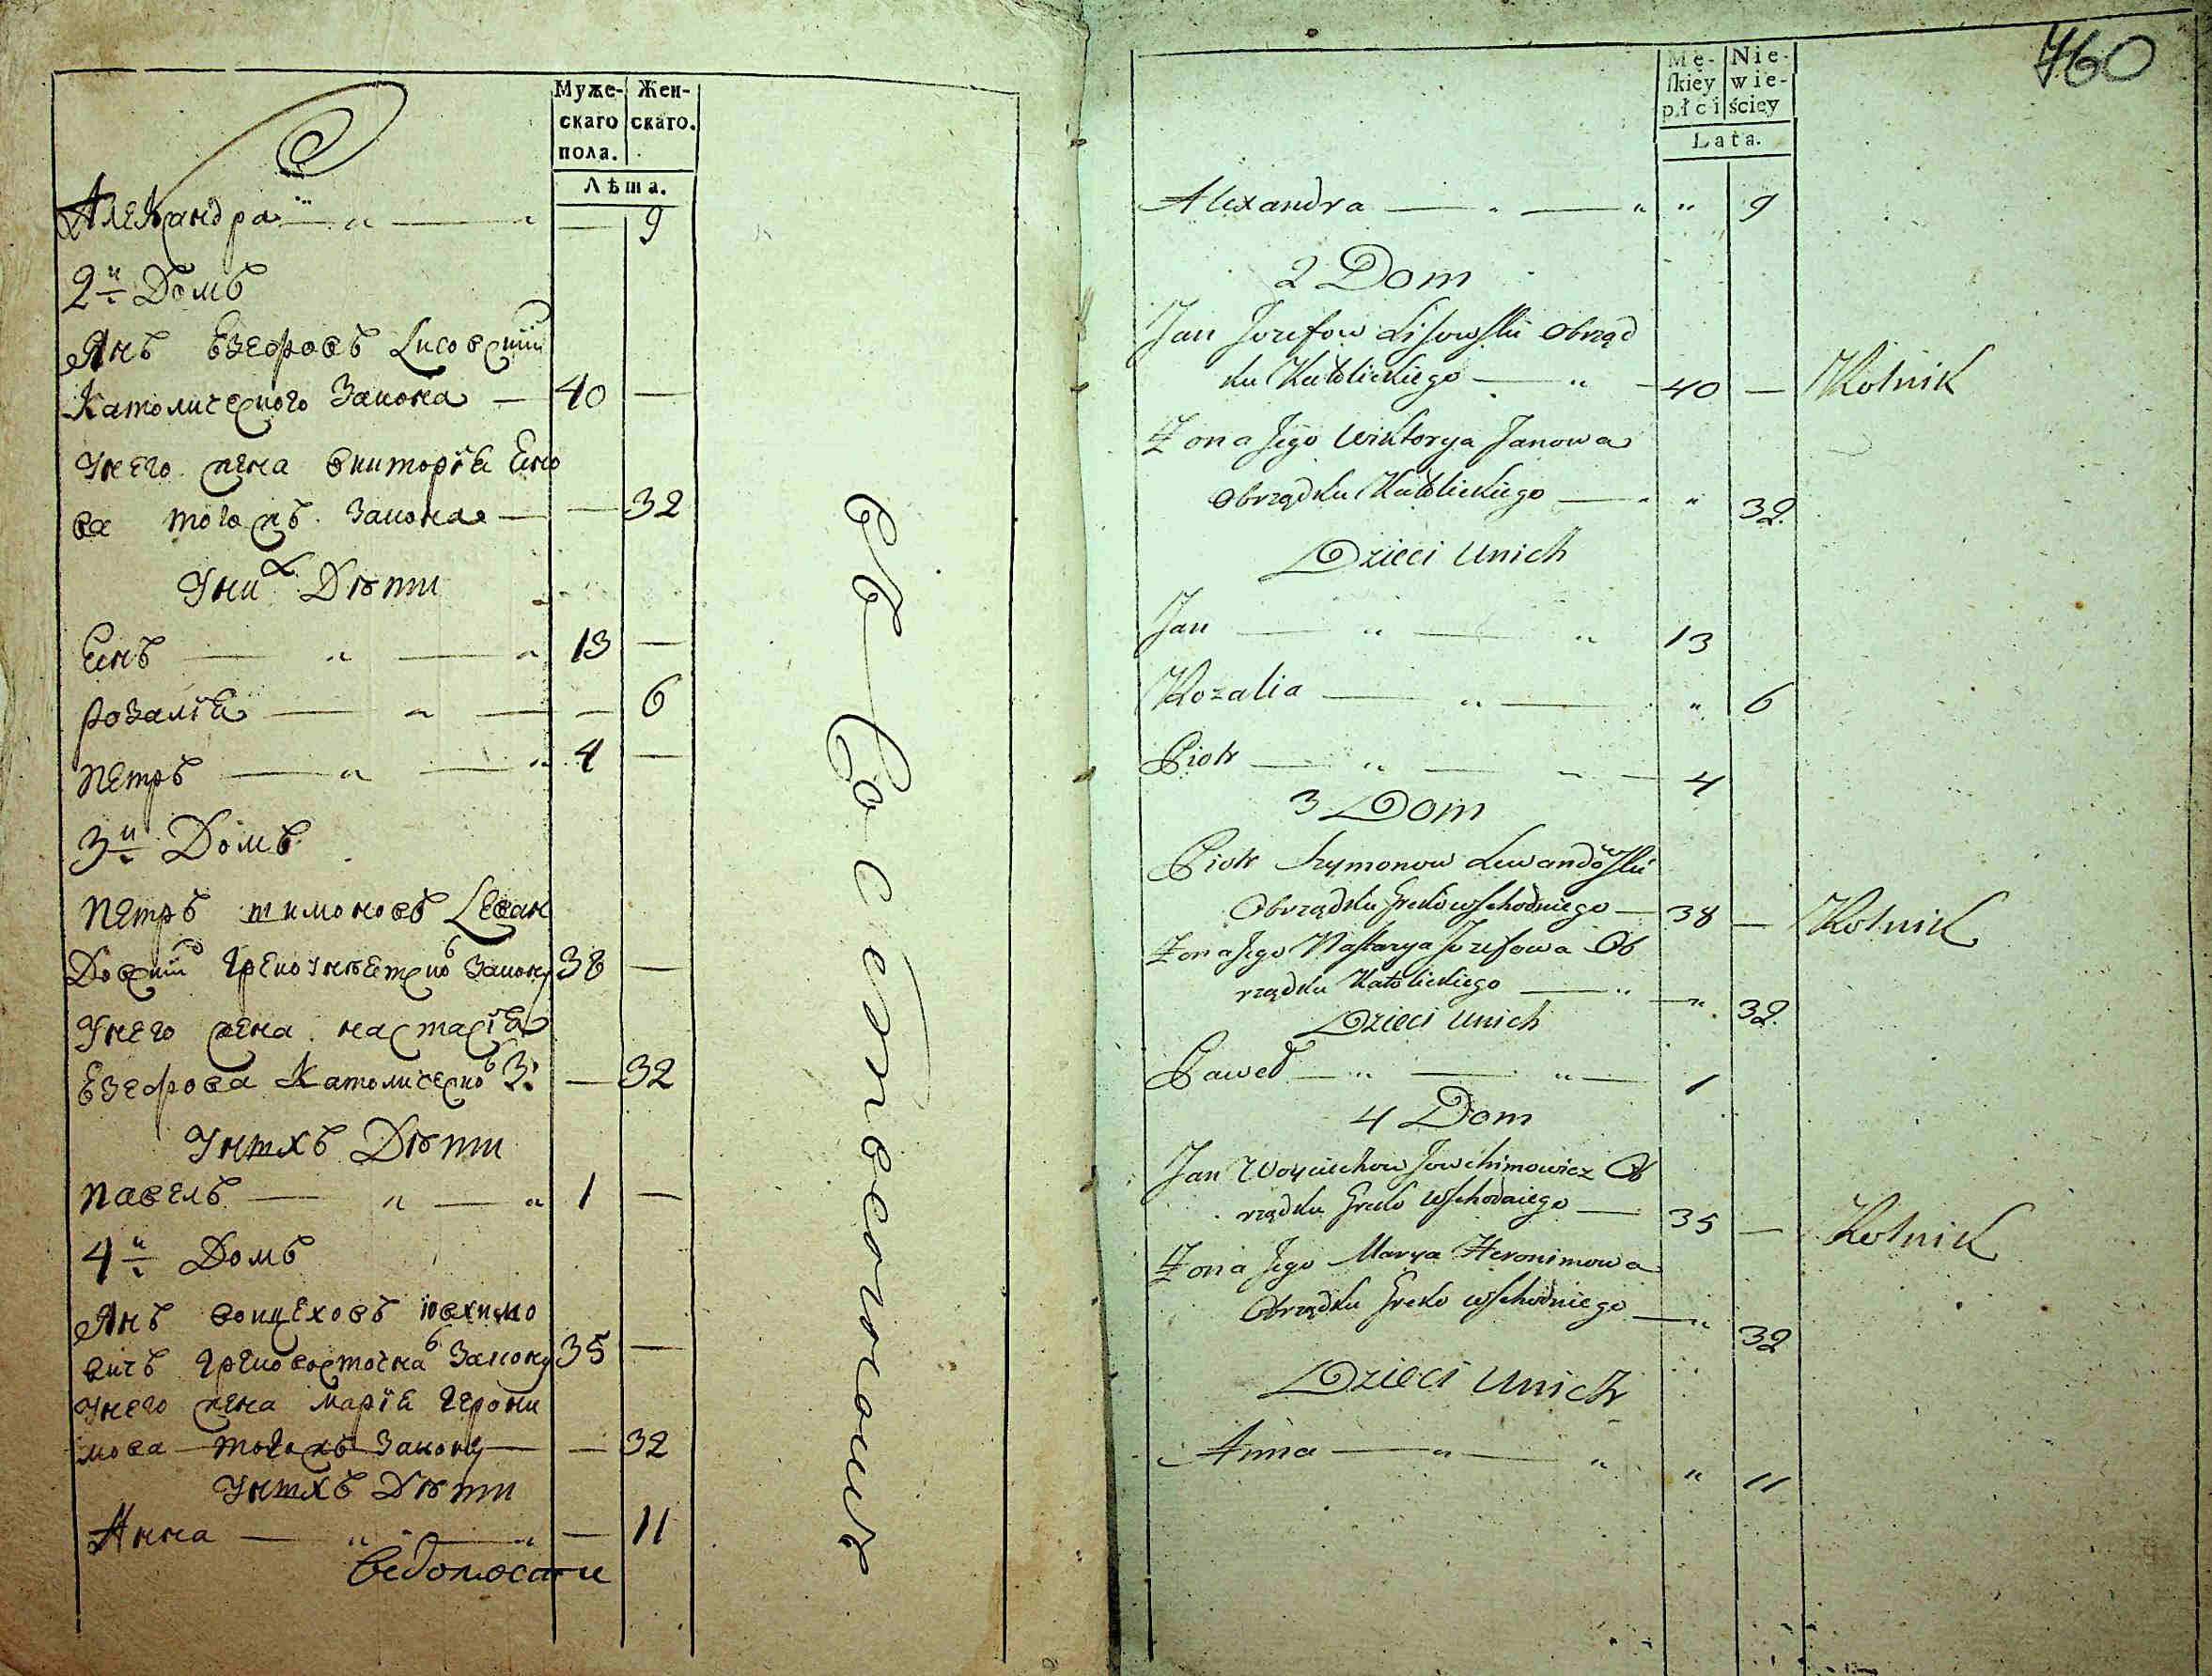 Муже-
скаго
пола.
Жен-
скаго.
Лѣта.
Александра — 9
2й Домъ
Янъ Езефовъ Лисовский
Католического Закона — 40 —
У него жена викторiя Яно
ва того жъ Закона — — 32
У них Дѣти
Янъ — 13 —
розалiя — — 6
петръ — 4 —
3й Домъ
петръ шимоновъ Леван
Довский Греко Закону 38 —
У него жена настасiя
Езефова Католическо З: — 32
У нихъ Дѣти
павелъ — 1 —
4й Домъ
Янъ войцеховъ юахимо
вичъ Грековосточна Закону 35 —
У него жена марiя Герони
мова того жъ Закону — — 32
У нихъ Дѣти
Анна — — 11
ведомости
760
Mę-
ſkiey
płci
Nie-
wie-
ściey
Lata.
Alexandra — " — " " 9
2 Dom
Jan Jozefow Liſowſki Obrząd
ku Katolickiego — " — 40 — Rolnik
Żona Jego Wiktorya Janowa
Obrządku Katolickiego — " " 32.
Dzieci Unich
Jan — " — " 13
Rozalia — " — " 6
Piotr — " — 4
3 Dom
Piotr Szymonow Lewandowſki
Obrządku Greko wſchodniego — 38 — Rolnik
Żona Jego Naſtazya Jozefowa Ob
rządku Katolickiego — " — " 32.
Dzieci Unich
Paweł — " — " — 1
4 Dom
Jan Woyciechow Jowchimowicz Ob
rządku Greko Wſchodniego — 35 — Rolnik
Żona Jego Marya Heronimowa
Obrządku Greko wſchodniego — " 32
Dzieci Unich
Anna — " — " " 11